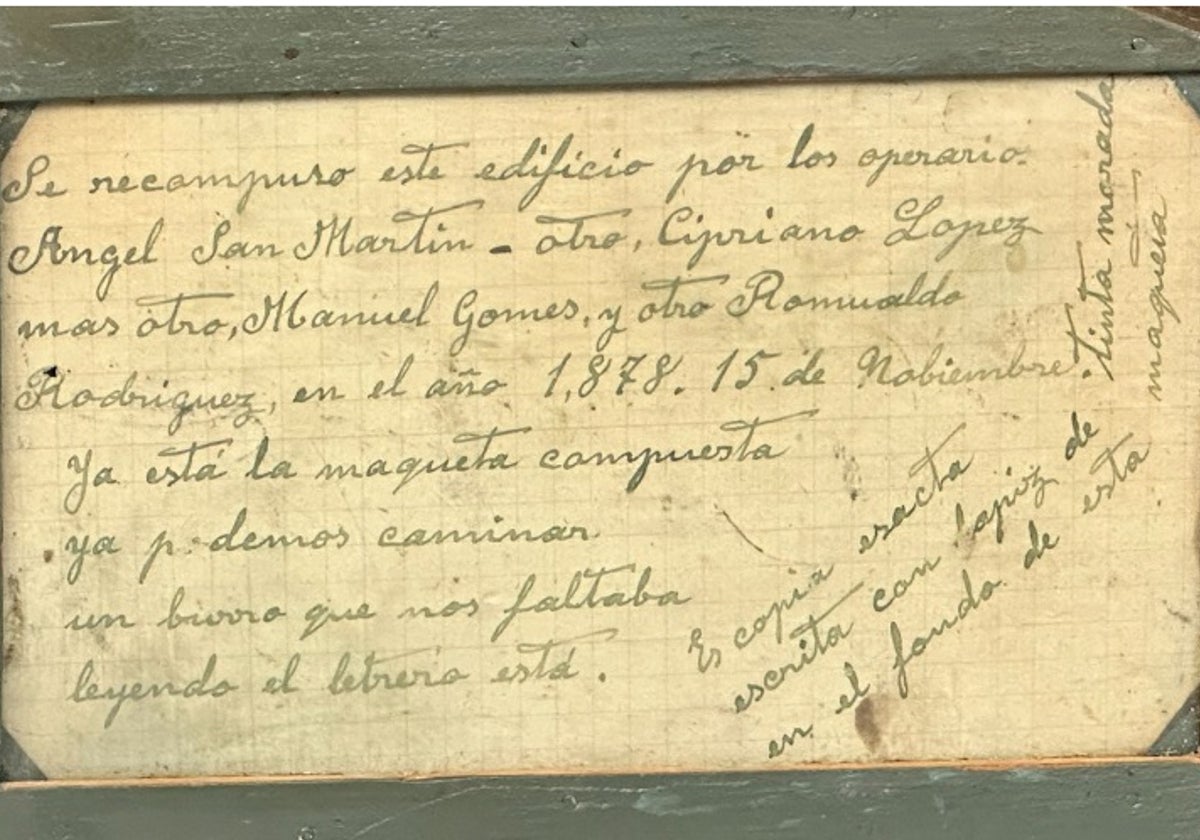 Se recompuso este edificio por los operario.
Angel San Martin - otro, Cipriano Lopez
mas otro, Manuel Gomes, y otro Romualdo
Rodriguez, en el año 1,878. 15 de Nobiembre.
Ya está la maqueta compuesta
ya p demos caminar
un burro que nos faltaba
leyendo el letrero está.
Es copia esacta
escrita con lapiz de tinta morada
en el fondo de esta maqueta